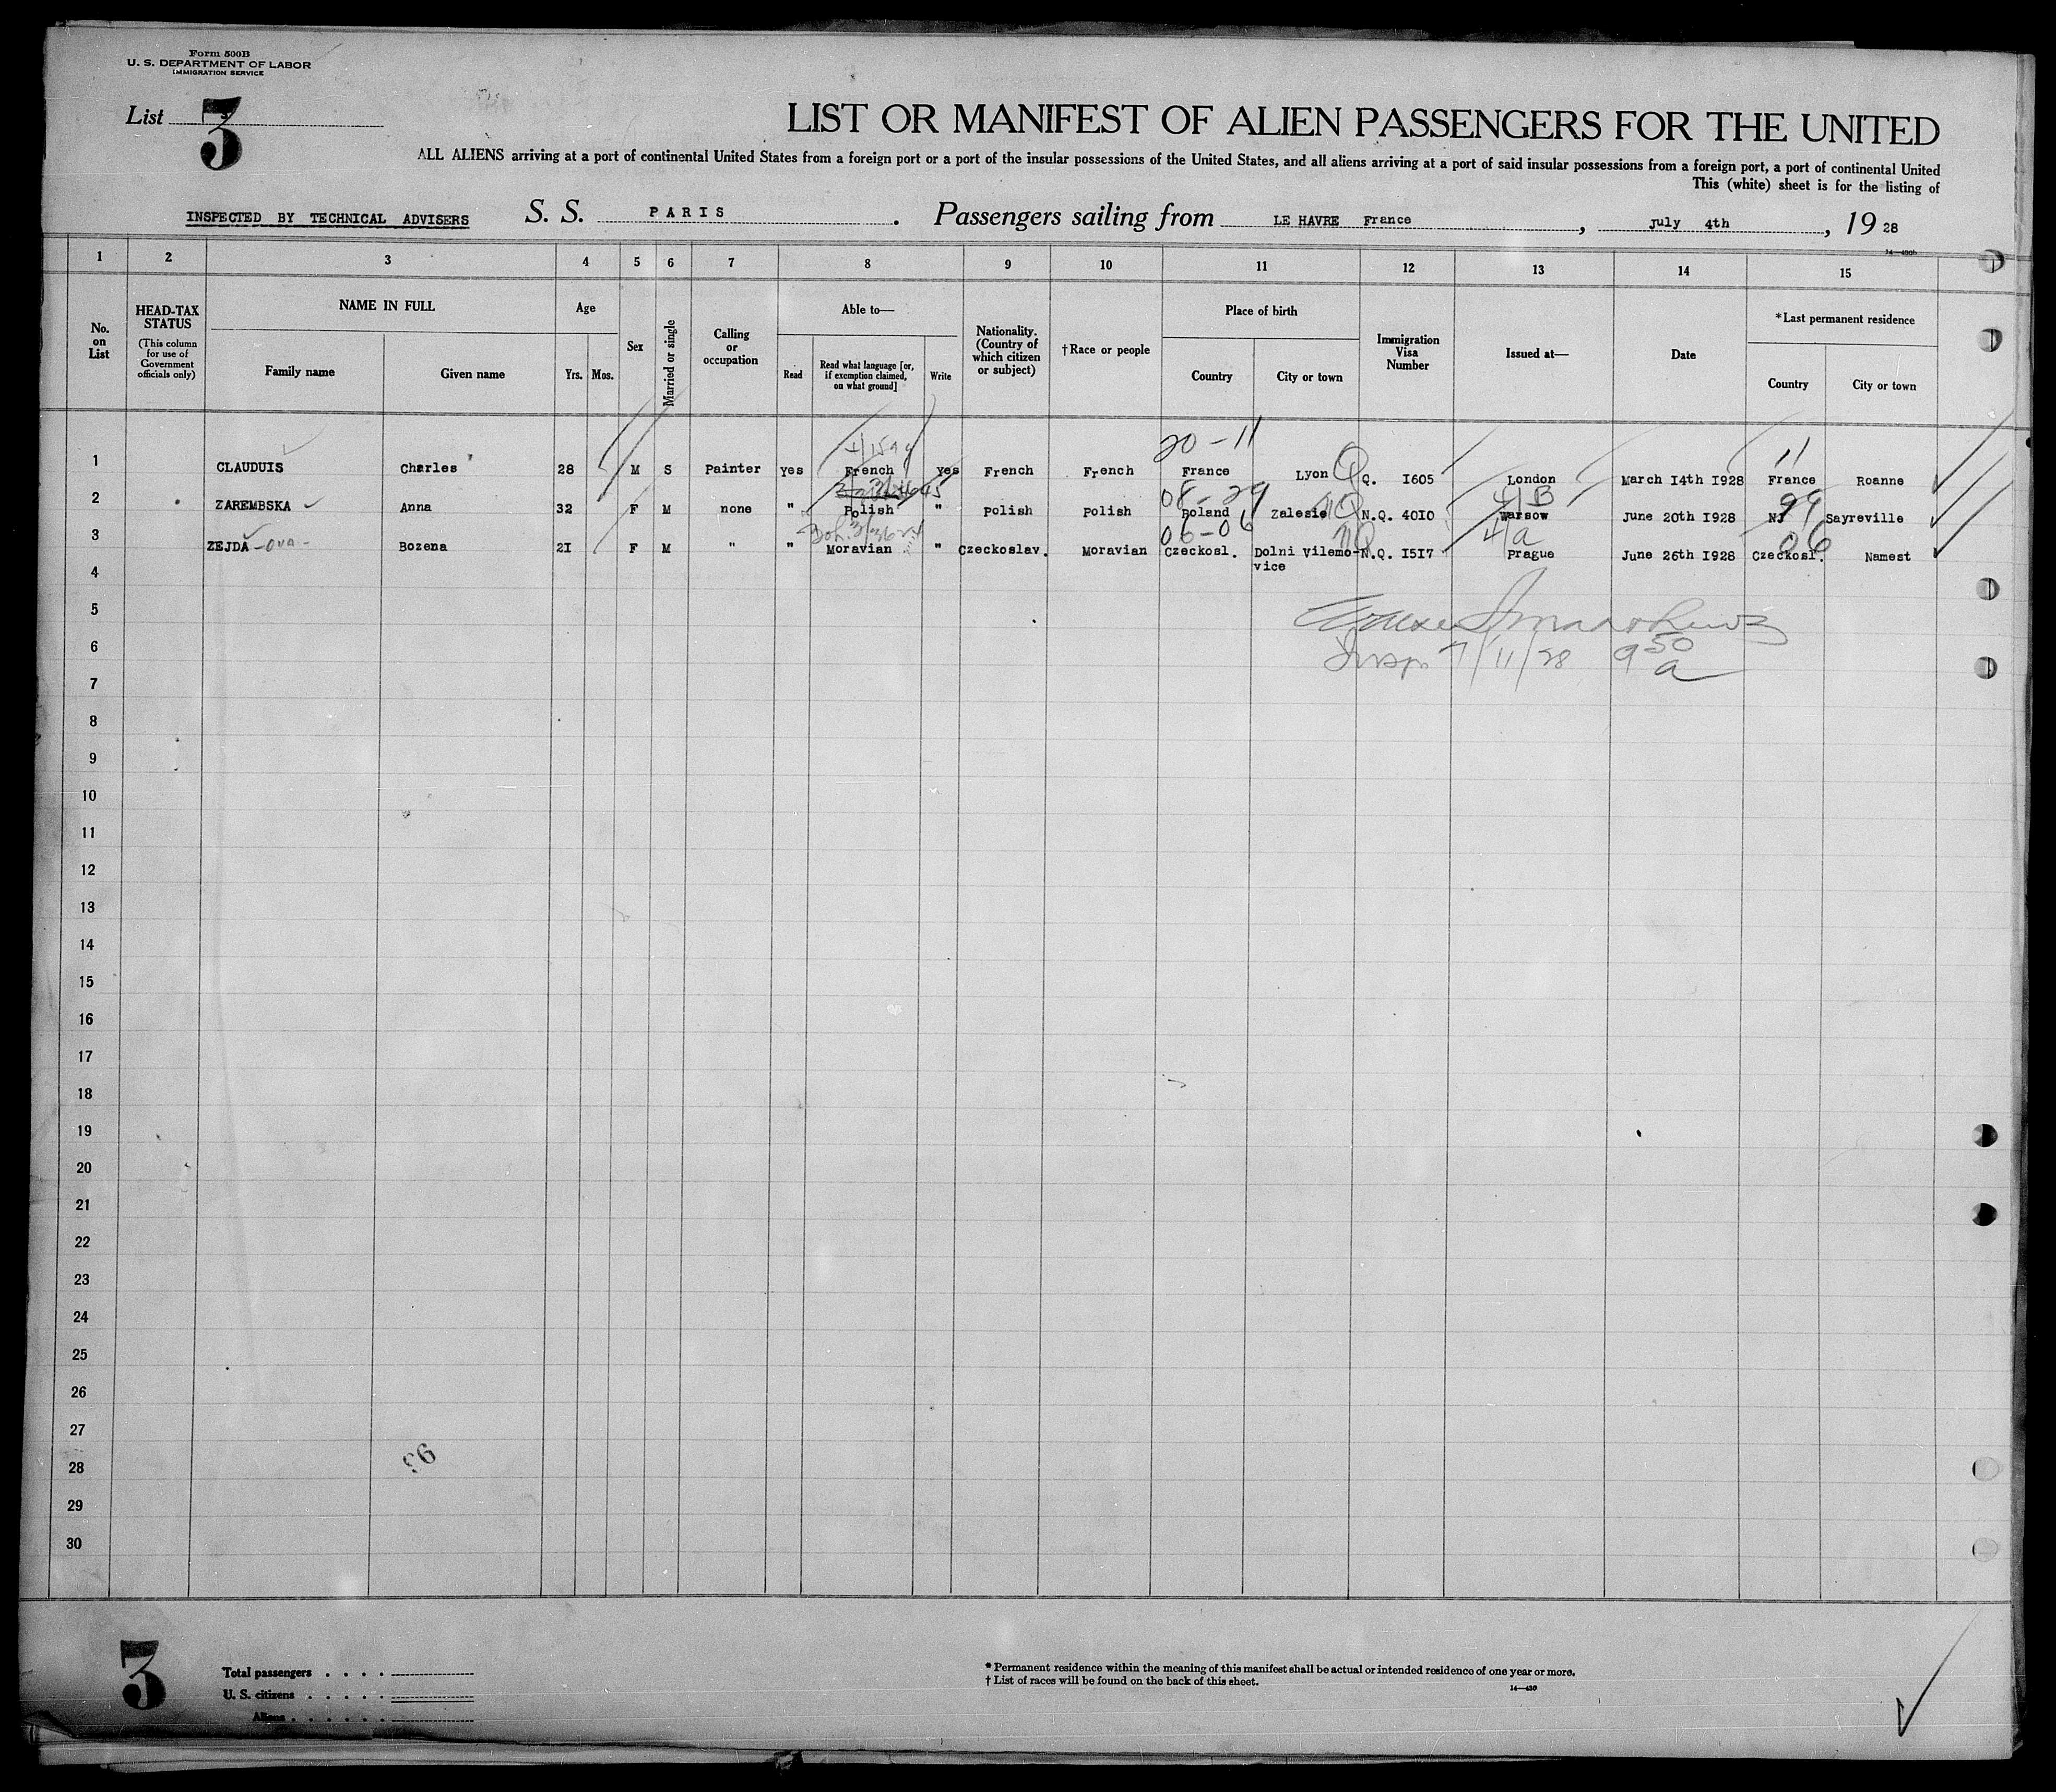 Form 500B
U. S. DEPARTMENT OF LABOR
IMMIGRATION SERVICE
List 3
LIST OR MANIFEST OF ALIEN PASSENGERS FOR THE UNITED
ALL ALIENS arriving at a port of continental United States from a foreign port or a port of the insular possessions of the United States, and all aliens arriving at a port of said insular possessions from a foreign port, a port of continental United
This (white) sheet is for the listing of
INSPECTED BY TECHNICAL ADVISERS S. S. PARIS. Passengers sailing from LE HAVRE France, July 4th, 19 28
14—430b
1 2 3 4 5 6 7 8 9 10 11 12 13 14 15
No. on List
HEAD-TAX STATUS
(This column for use of Government officials only)
NAME IN FULL
Family name Given name
Age
Yrs. Mos.
Sex
Married or single
Calling or occupation
Able to—
Read Read what language [or, if exemption claimed, on what ground] Write
Nationality. (Country of which citizen or subject)
†Race or people
Place of birth
Country City or town
Immigration Visa Number
Issued at—
Date
*Last permanent residence
Country City or town
20-11 11
1 CLAUDUIS Charles 28 M S Painter yes French yes French French France Lyon Q Q. I605 London March I4th I928 France Roanne
08-29 4/B 29
2 ZAREMBSKA Anna 32 F M none " Polish " Polish Polish Poland Zalesie NQ N.Q. 40I0 Warsow June 20th I928 NJ Sayreville
06-06 4/a 06
3 ZEJDA -ova- Bozena 2I F M " " Moravian " Czeckoslav. Moravian Czeckosl. Dolni Vilemo- NQ N.Q. I5I7 Prague June 26th I928 Czeckosl. Namest
vice
4
5
6
Insp 7/11/28 9 50 a
7
8
9
10
11
12
13
14
15
16
17
18
19
20
21
22
23
24
25
26
27
28
29
30
3
Total passengers . . . .
U. S. citizens . . . . .
Aliens . . . . . .
* Permanent residence within the meaning of this manifest shall be actual or intended residence of one year or more.
† List of races will be found on the back of this sheet.
14—430